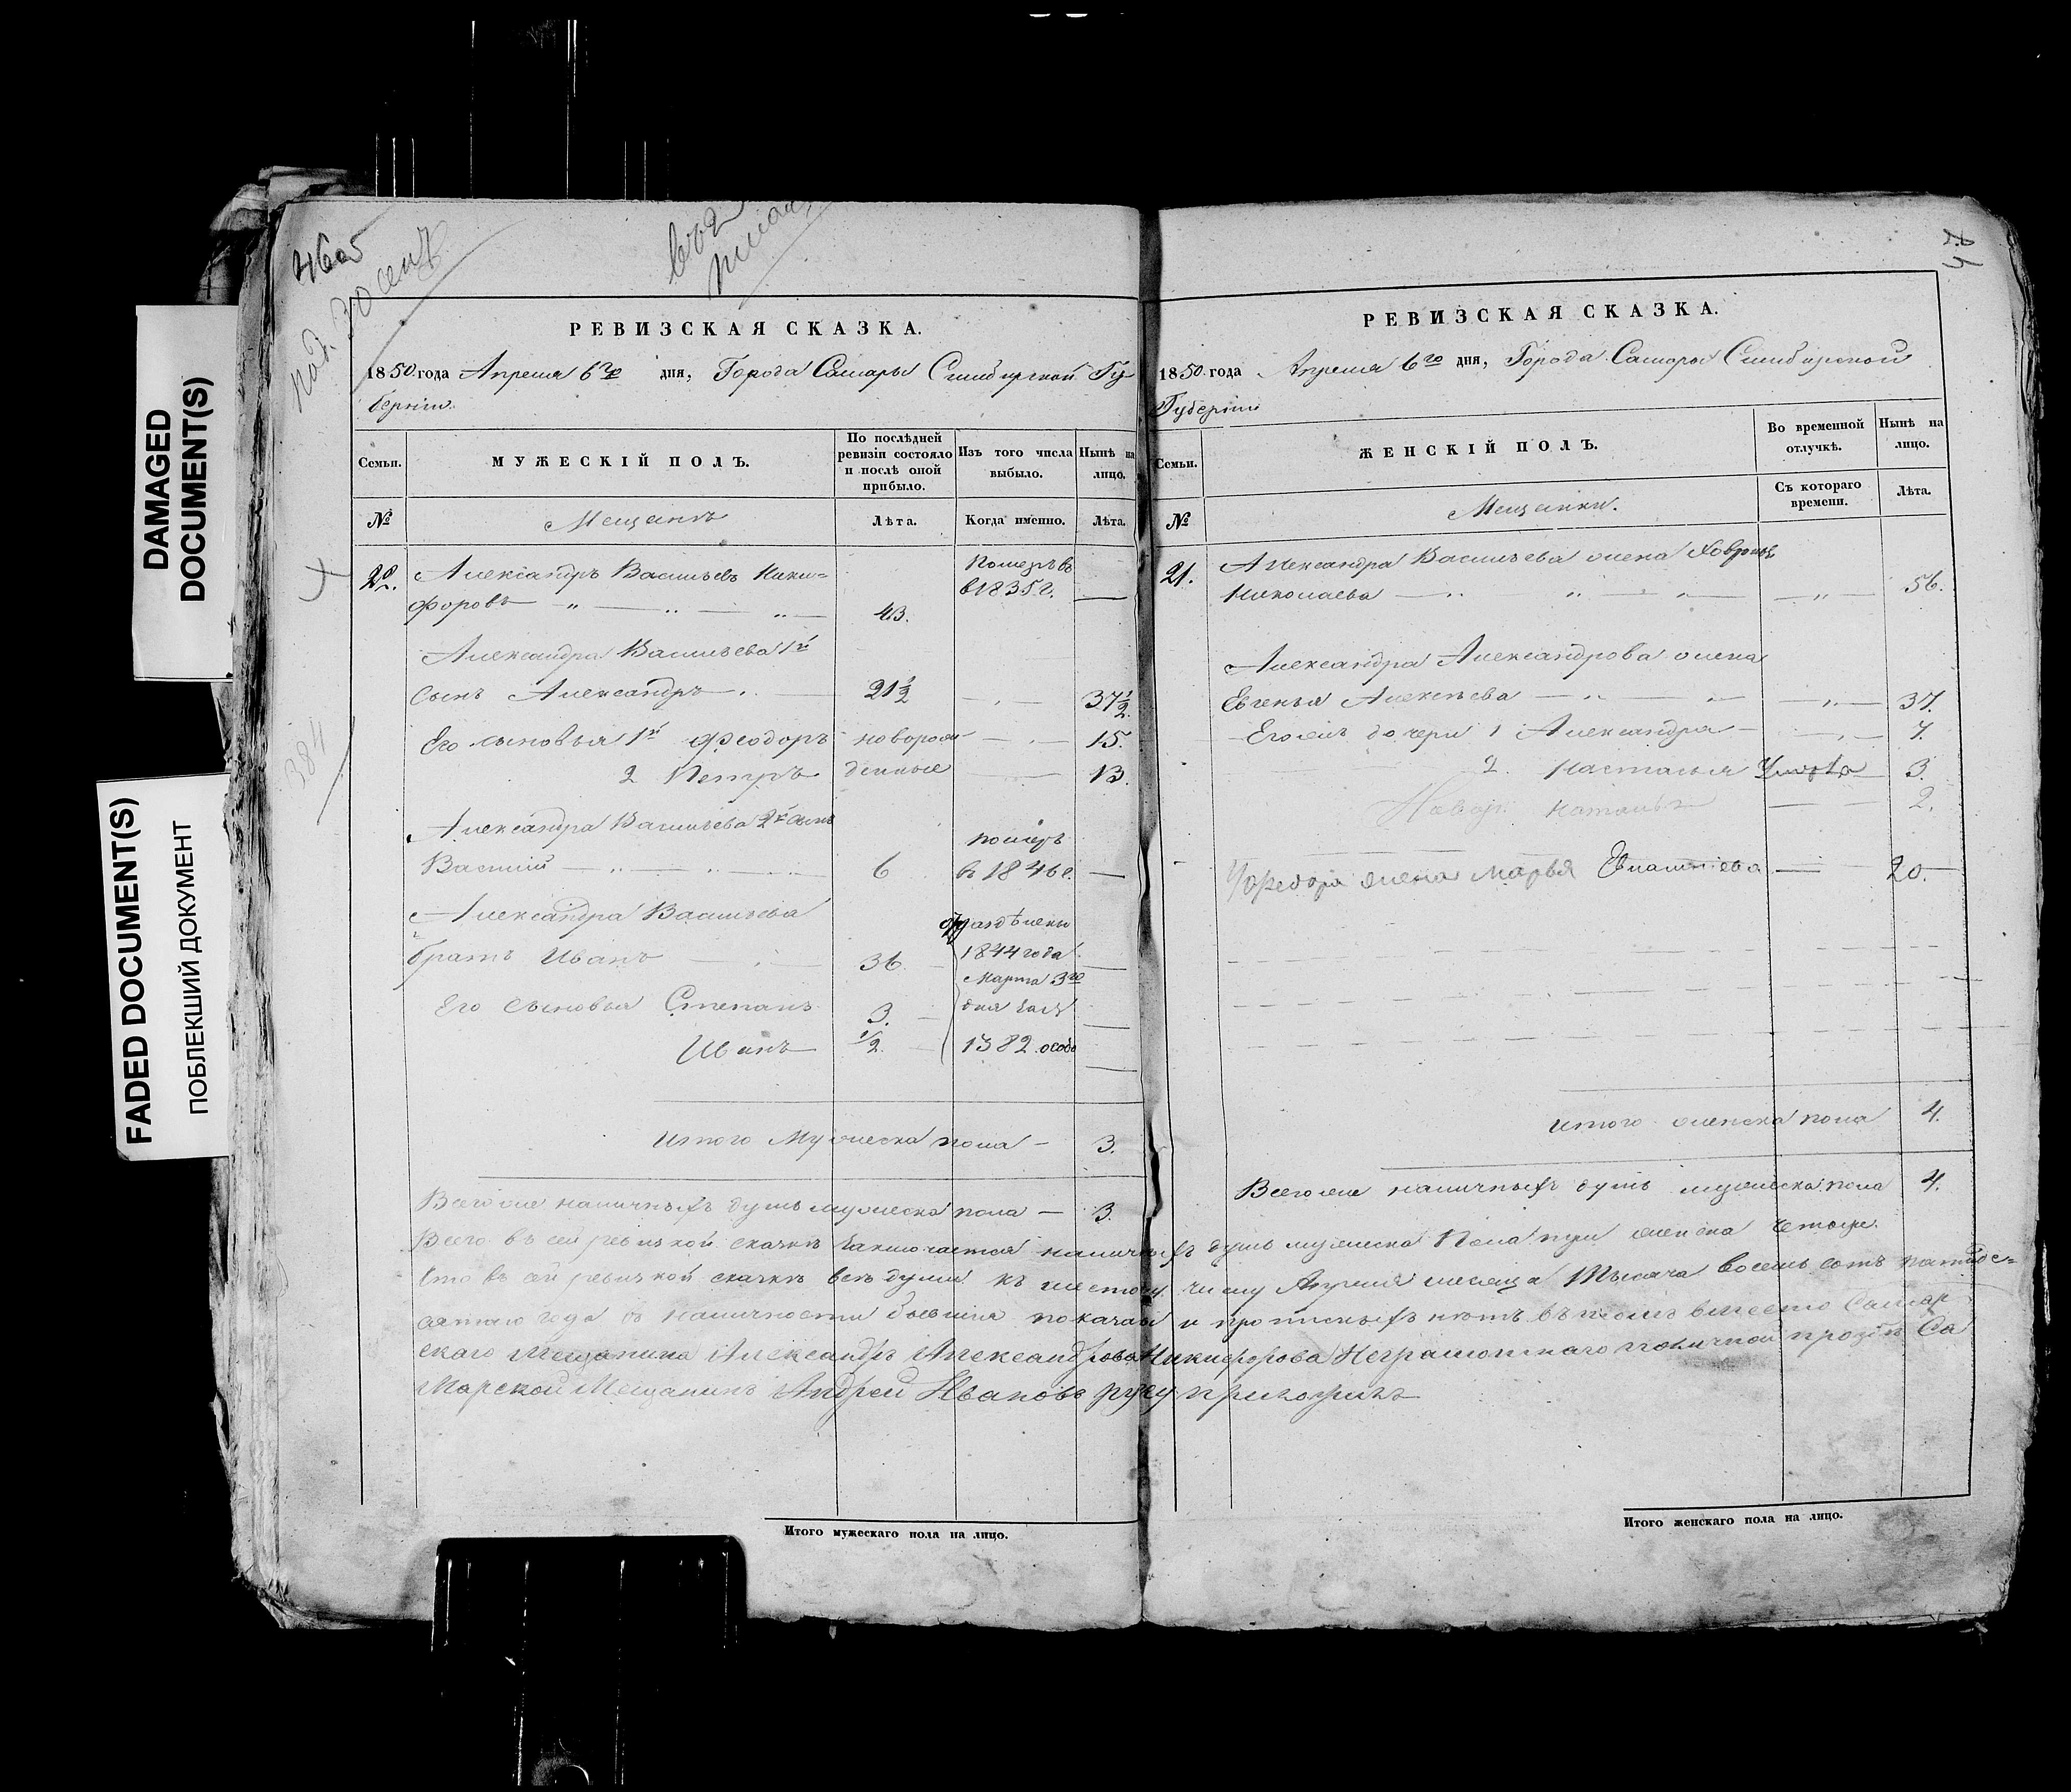 DAMAGED
DOCUMENT(S)
FADED DOCUMENT(S)
ПОБЛЕКШИЙ ДОКУМЕНТ
384
РЕВИЗСКАЯ СКАЗКА.
1850 года Апреля 6го дня, Города Самары Симбирской Гу
берніи.
Семьи.
МУЖЕСКІЙ ПОЛЪ.
По послѣдней
ревизіи состояло
и послѣ оной
прибыло.
Изъ того числа
выбыло.
Нынѣ на
лицо.
№
Мещанъ
Лѣта.
Когда именно.
Лѣта.
Александръ Васильевъ Ники=
форовъ 43.
1835 г.
Александра Васильева 1й
сынъ Александръ 21½ 37½.
Его сыновья 1й Феодоръ новорож 15.
2 Петръ денные 13.
Александра Васильева 2й сынъ
Василій 6 померъ в 1846 г.
Александра Васильева
братъ Иванъ 36
1844 года
Марта 3го
дня
Его сыновья Степанъ 3.
Иванъ ½ 1382 особо
Итого Мужеска пола — 3.
Всего же наличныхъ душъ мужеска пола — 3.
РЕВИЗСКАЯ СКАЗКА.
1850 года Апреля 6го дня, Города Самары Симбирской
Губерніи
Семьи.
ЖЕНСКІЙ ПОЛЪ.
Во временной
отлучкѣ.
Нынѣ на
лицо.
№
Мещанки.
Съ котораго
времени.
Лѣта.
21. Александра Васильева жена
Николаева 56.
Александра Александрова жена
Евгенья Алексѣева 37.
Его же дочери 1 Александра 7.
2. Настасья 3.
2.
жена Марья 20.
итого женска пола 4.
Всего же наличныхъ душъ мужеска пола 4.
Всего въ сей ревизкой сказкѣ заключается наличныхъ душъ мужеска Пола три женска четыре.
Что въ сей ревизкой сказкѣ всѣ души къ шестому числу Апреля месяца Тысяча восемь сотъ пятиде=
сятаго года въ наличности бывшия показаны и прописныхъ нѣтъ въ томъ вместо Самар
скаго Мещанина Александръ Александрова Никифорова Неграмотнаго поличной прозбе Са
Марской Мещанинъ Андрей Ивановъ руку приложилъ
Итого мужескаго пола на лицо.
Итого женскаго пола на лицо.